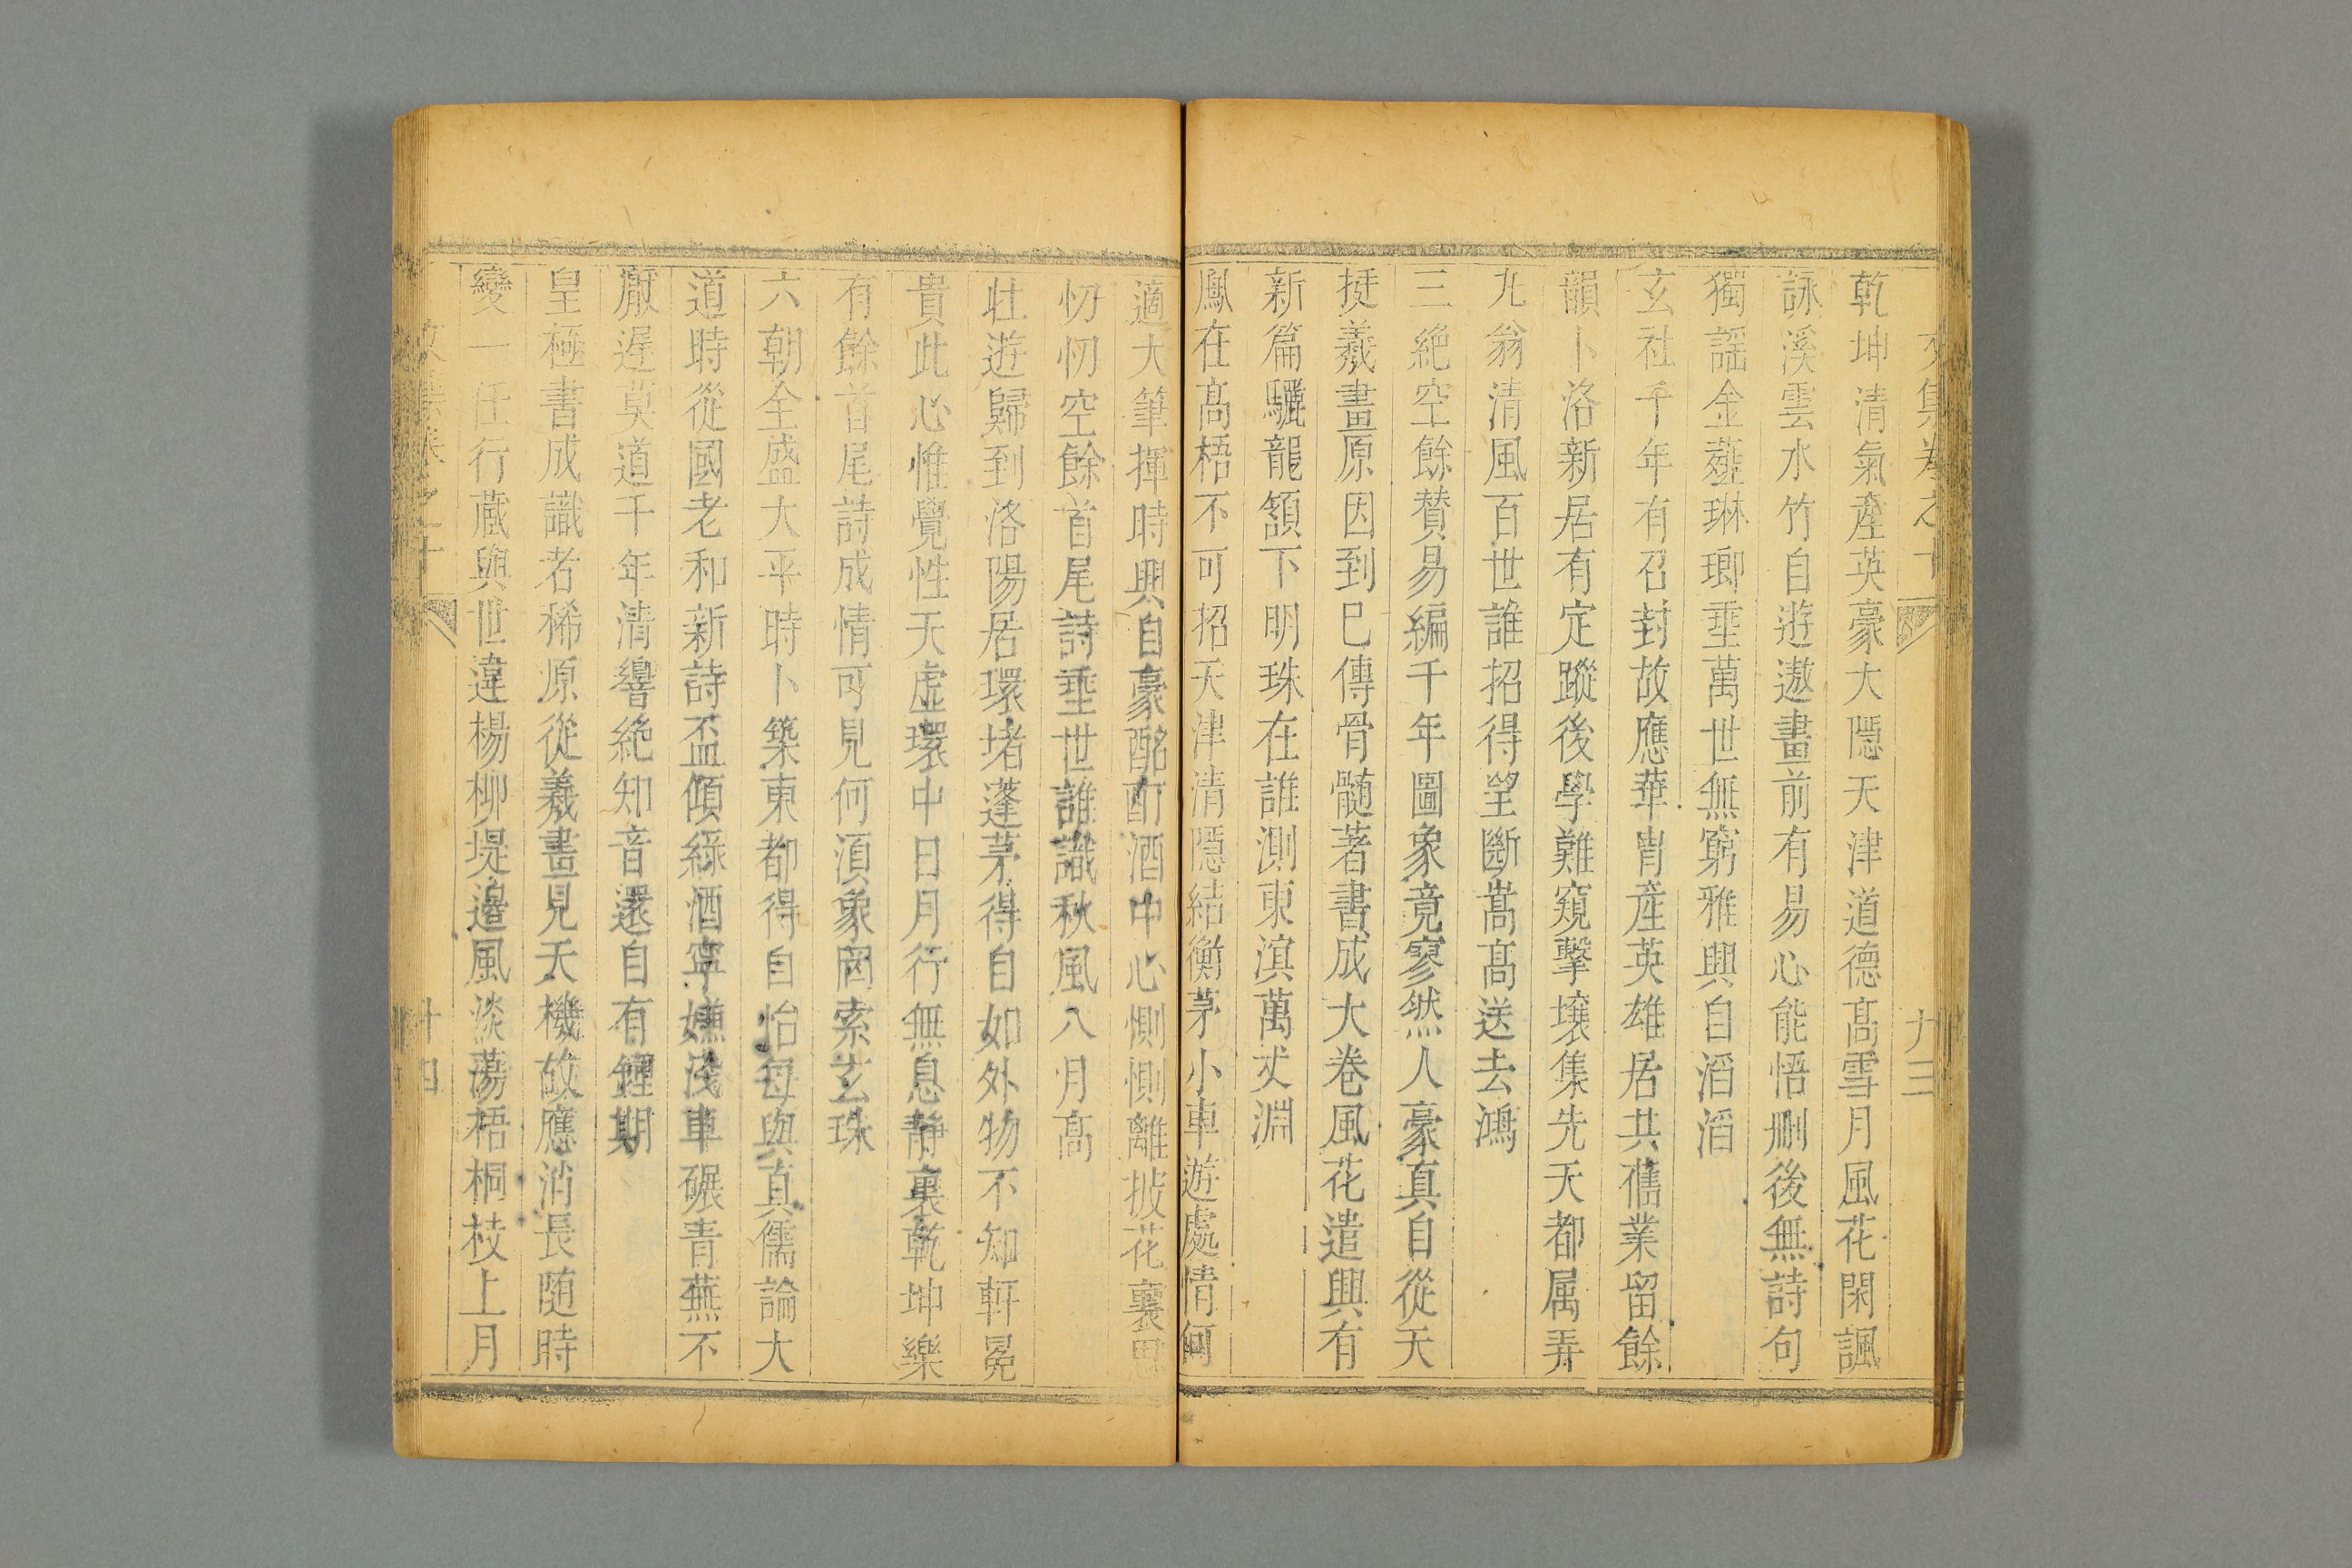 乾坤清氣產英豪大隱天津道德髙雪月風花閑諷
詠溪雲水竹自遊遨畫前有易心能悟刪後無詩句
獨謡金薤琳瑯垂萬世無窮雅興自滔滔
玄社千年有召封故應華胄産英雄居共舊業留餘
韻卜洛新居有定蹤後學難窺擊壤集先天都属弄
九翁清風百世誰招得望斷嵩髙送去鴻
三絶空餘賛易編千年圖象竟寥然人豪真自從天
挺羲畫原因到巳傳骨髓著書成大卷風花遣興有
新篇驪龍頷下明珠在誰測東溟萬丈淵
鳳在髙梧不可招天津清隱結衡茅小車遊處情何
適大筆揮時興自豪酩酊酒中心惻惻離披花裏思
忉忉空餘首尾詩垂世誰識秋風八月髙
壮遊歸到洛陽居環堵蓬茅得自如外物不知軒冕
貴此心惟覺性天虚環中日月行無息靜裏乾坤樂
有餘首尾詩成情可見何湏象罔索玄珠
六朝全盛大平時卜築東都得自怡毎與真儒論大
道時從國老和新詩盃傾綠酒寧嫌淺車碾青蕪不
厭遲莫道千年清響絶知音還自有鍾期
皇極書成識者稀原從羲畫見天機故應消長随時
變一任行蔵與世違楊柳堤邊風淡蕩梧桐枝上月
文集卷之十
十四